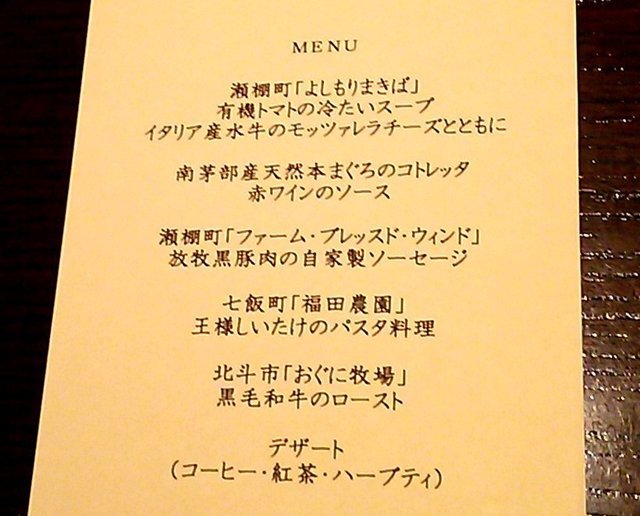 MENU
瀬棚町「よしもりまきば」
有機トマトの冷たいスープ
イタリア産水牛のモッツァレラチーズとともに
南茅部産天然本まぐろのコトレッタ
赤ワインのソース
瀬棚町「ファーム・ブレッスド・ウィンド」
放牧黒豚肉の自家製ソーセージ
七飯町「福田農園」
王様しいたけのパスタ料理
北斗市「おぐに牧場」
黒毛和牛のロースト
デザート
(コーヒー・紅茶・ハーブティ)